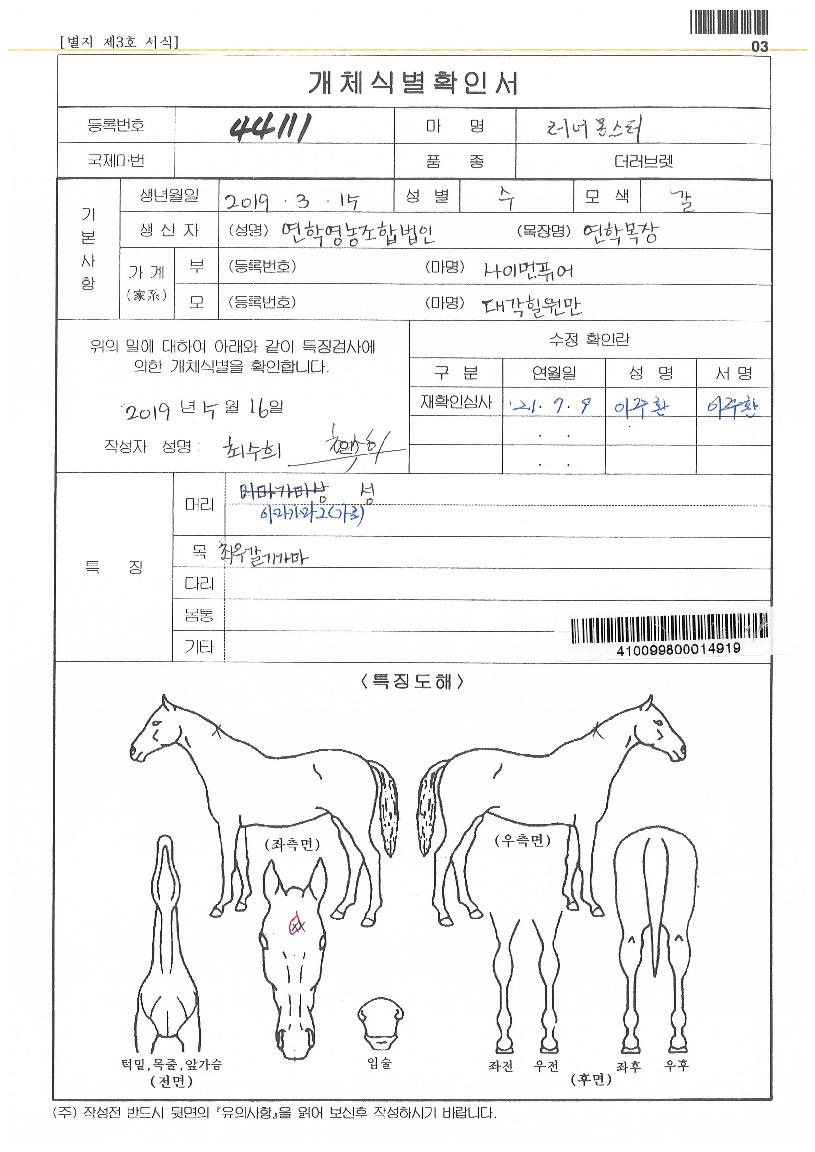 [별지 제3호 서식]
03
개체식별확인서
등록번호 44111 마 명 러너몬스터
국제마번 품 종 더러브렛
기본사항
생년월일 2019 . 3 . 15 성 별 수 모 색 갈
생 산 자 (성명) 연학영농조합법인 (목장명) 연학목장
가 계 (家系) 부 (등록번호) (마명) 나이먼퓨어
모 (등록번호) (마명) 대각힐원만
위의 말에 대하여 아래와 같이 특징검사에
의한 개체식별을 확인합니다.
2019 년 5 월 16일
작성자 성명 : 최수희
수정 확인란
구 분 연월일 성 명 서 명
재확인심사 '21. 7. 9 이주환 이주환
. .
. .
특 징
머리 이마가마상 성
이마가마2(가로)
목 좌우갈기가마
다리
몸통
기타
410099800014919
<특징도해>
(좌측면) (우측면)
턱밑,목줄,앞가슴
(전면)
입술
좌전 우전 좌후 우후
(후면)
(주) 작성전 반드시 뒷면의 『유의사항』을 읽어 보신후 작성하시기 바랍니다.